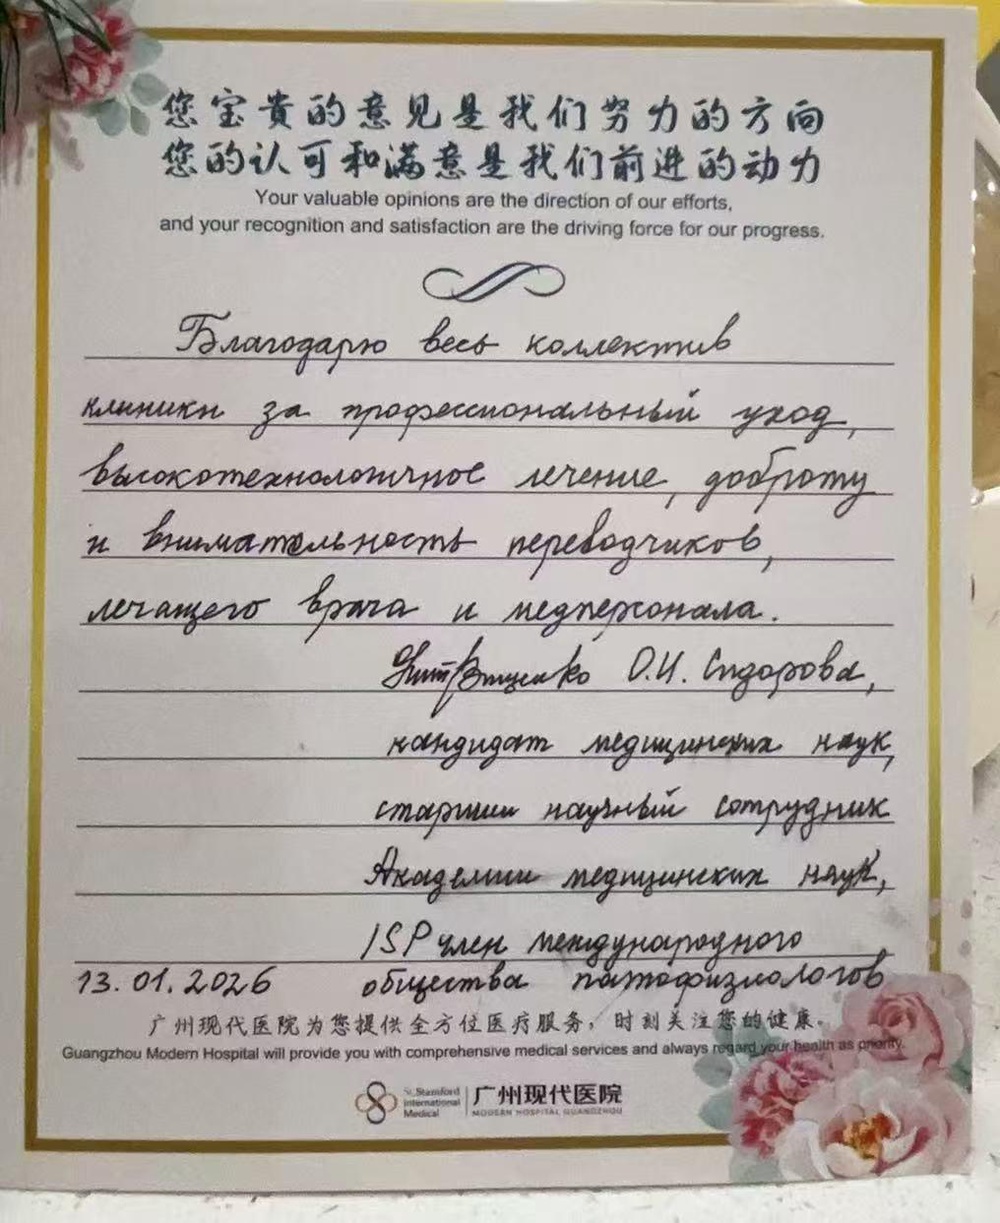 您宝贵的意见是我们努力的方向
您的认可和满意是我们前进的动力
Your valuable opinions are the direction of our efforts,
and your recognition and satisfaction are the driving force for our progress.
Благодарю весь коллектив
клиники за профессиональный уход,
высокотехнологичное лечение, доброту
и внимательность переводчиков,
лечащего врача и медперсонала.
О.И. Сидорова,
кандидат медицинских наук,
старший научный сотрудник
Академии медицинских наук,
ISP член международного
13.01.2026 общества патофизиологов
广州现代医院为您提供全方位医疗服务，时刻关注您的健康。
Guangzhou Modern Hospital will provide you with comprehensive medical services and always regard your health as priority.
St.Stamford
International
Medical
广州现代医院
MODERN HOSPITAL GUANGZHOU